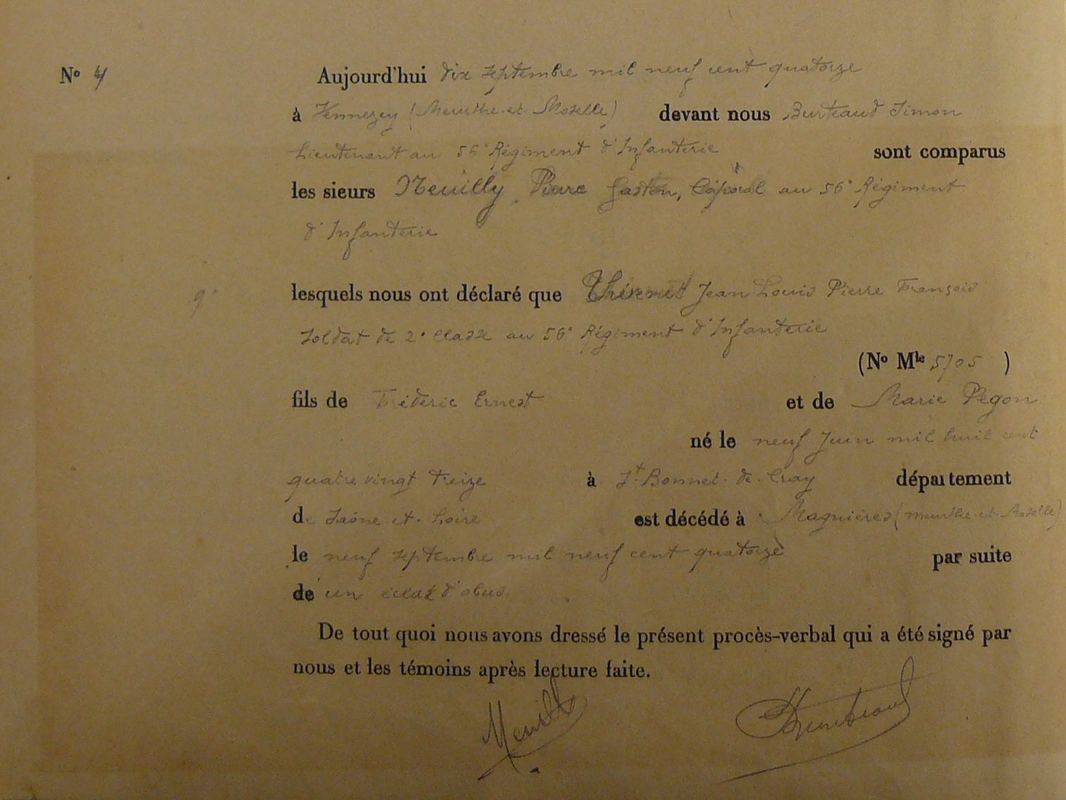 Nº 4 Aujourd'hui dix septembre mil neuf cent quatorze
à Vennezey (Meurthe-et-Moselle) devant nous Burteaud Simon
Lieutenant au 56e Régiment d'Infanterie sont comparus
les sieurs Neuilly Pierre Gaston, Caporal au 56e Régiment
d'Infanterie
9e lesquels nous ont déclaré que Jean Louis Pierre François
Soldat de 2e Classe au 56e Régiment d'Infanterie
(Nº Mle 5705 )
fils de Fréderic Ernest et de Marie Pegon
né le neuf Juin mil huit cent
quatre vingt treize à St. Bonnet-de-Cray département
de Saône-et-Loire est décédé à Magnières (Meurthe-et-Moselle)
le neuf septembre mil neuf cent quatorze par suite
de un éclat d'obus
De tout quoi nous avons dressé le présent procès-verbal qui a été signé par
nous et les témoins après lecture faite.